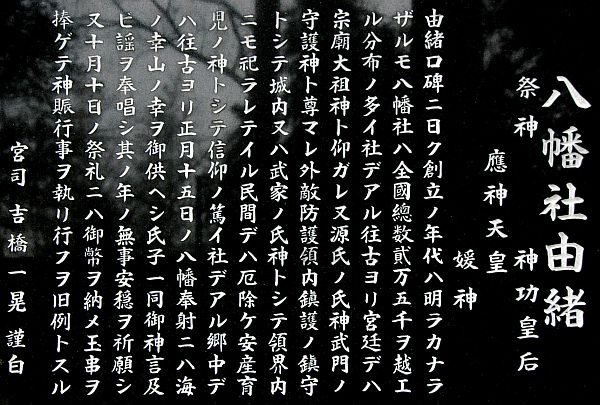 八幡社由緒
祭神　神功皇后
應神天皇
媛神
由緒口碑ニ曰ク創立ノ年代ハ明ラカナラ
ザルモ八幡社ハ全國總数貳万五千ヲ越エ
ル分布ノ多イ社デアル往古ヨリ宮廷デハ
宗廟大祖神ト仰ガレ又源氏ノ氏神武門ノ
守護神ト尊マレ外敵防護領内鎮護ノ鎮守
トシテ城内又ハ武家ノ氏神トシテ領界内
ニモ祀ラレテイル民間デハ厄除ケ安産育
児ノ神トシテ信仰ノ篤イ社デアル郷中デ
ハ往古ヨリ正月十五日ノ八幡奉射ニハ海
ノ幸山ノ幸ヲ御供ヘシ氏子一同御神言及
ビ謡ヲ奉唱シ其ノ年ノ無事安穏ヲ祈願シ
又十月十日ノ祭礼ニハ御幣ヲ納メ玉串ヲ
捧ゲテ神賑行事ヲ執リ行フヲ旧例トスル
宮司　吉橋一晃　謹白